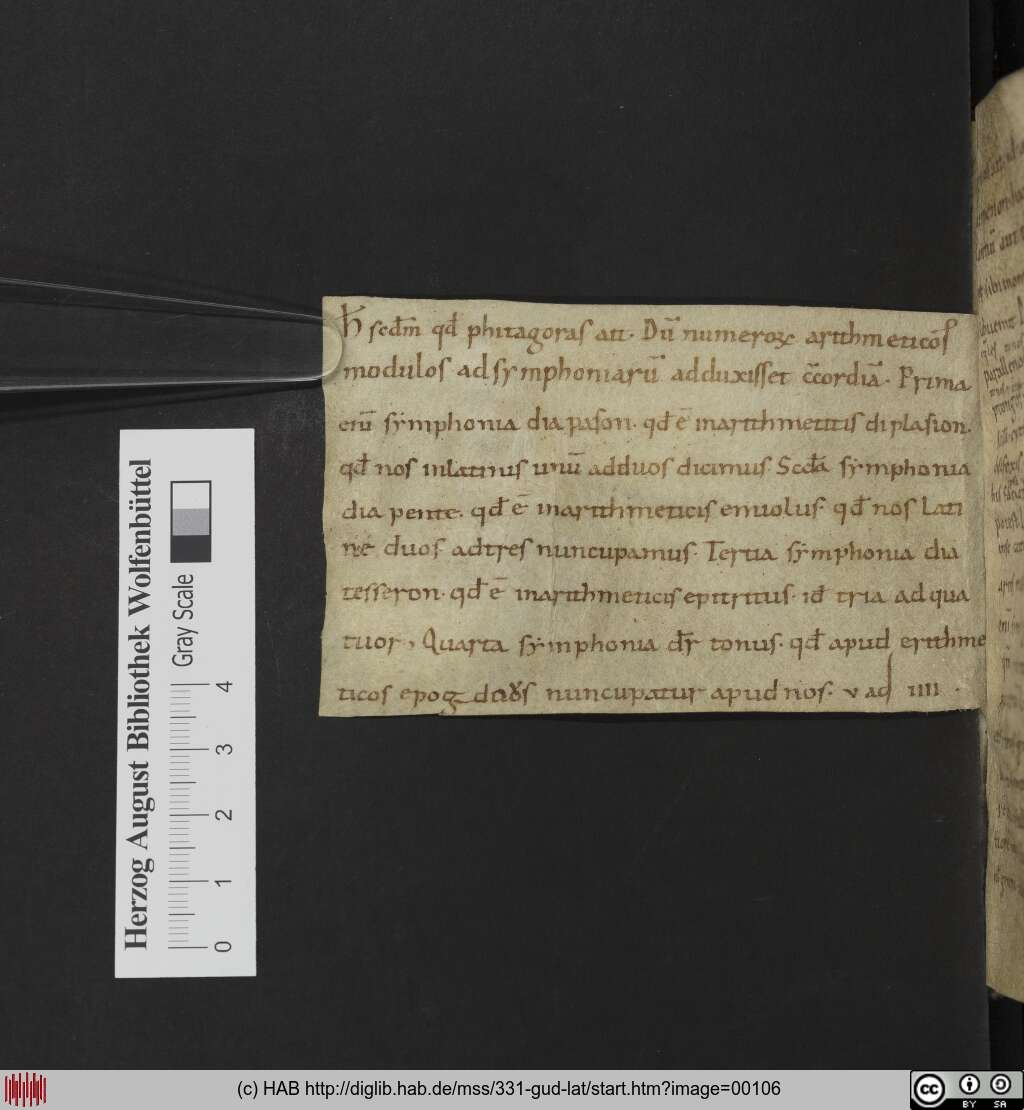 ħ scd̄m qđ phitagoras ait. Dū numeroꝝ arithmeticos
modulos ad symphoniarū adduxisset c̄cordiā. Prima
enī symphonia dia pason. qđ ē in arithmeticis di plasion.
qđ nos in latinis unū ad duos dicimus. Scđa symphonia
dia pente. qđ ē in arithmeticis emiolus. qđ nos Lati
ne duos ad tres nuncupamus. Tertia symphonia dia
tesseron. qđ ē in arithmeticis epitritus. id tria ad qua
tuor, Quarta symphonia dr̄ tonus. qđ apud erithme
ticos epog nuncupatur apud nos. v ad IIII.
Herzog August Bibliothek Wolfenbüttel
Gray Scale
0 1 2 3 4
(c) HAB http://diglib.hab.de/mss/331-gud-lat/start.htm?image=00106
cc BY SA